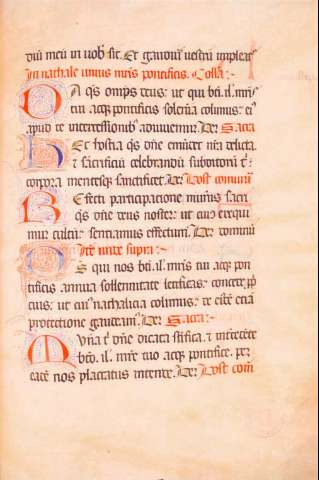 diū meū in uob sit. Et gaudiū uestrū impleat̃
In natale unius mr̃is pontificis. Collã:-
DA qs omp̃s deus: ut qui bti .il. mr̃is
tui acqꝫ pontificis solẽnia columus: eiꝰ
apud te intercessionibꝰ adiuuemur. Per Sacrã
Hec hostia qs dñe emũdet nr̃a delicta:
⁊ sacrificiũ celebrandũ subditorũ t̃
corpora mentesqꝫ sanctificet. Per Post cõmuni
Refecti participacione muneris sacri
qs dñe deus noster: ut cuiꝰ exequi
mur cultũ: sentiamus effectũ. Per dominũ
Itẽ unde supra:-
DS qui nos bti .il. mr̃is tui acqꝫ pon
tificis annua sollempnitate letificas: concede pp̃
cius: ut cuiꝰ natalicia columus: de eiꝰdẽ eciã
protectione gaudeamꝰ. Per Sacrã:-
Munera t̃ dñe dicata sc̃ifica: ⁊ intercedẽte
bt̃o .il. mr̃e tuo acqꝫ pontifice. per
eadẽ nos placatus intende. Per Post com̃